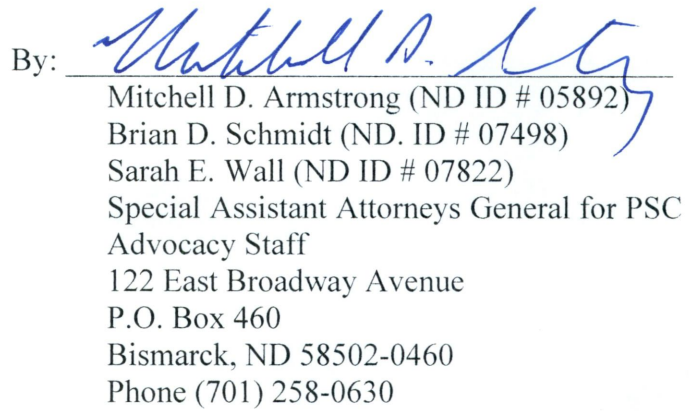 By: Mitchell D. Armstrong
Mitchell D. Armstrong (ND ID # 05892)
Brian D. Schmidt (ND. ID # 07498)
Sarah E. Wall (ND ID # 07822)
Special Assistant Attorneys General for PSC
Advocacy Staff
122 East Broadway Avenue
P.O. Box 460
Bismarck, ND 58502-0460
Phone (701) 258-0630